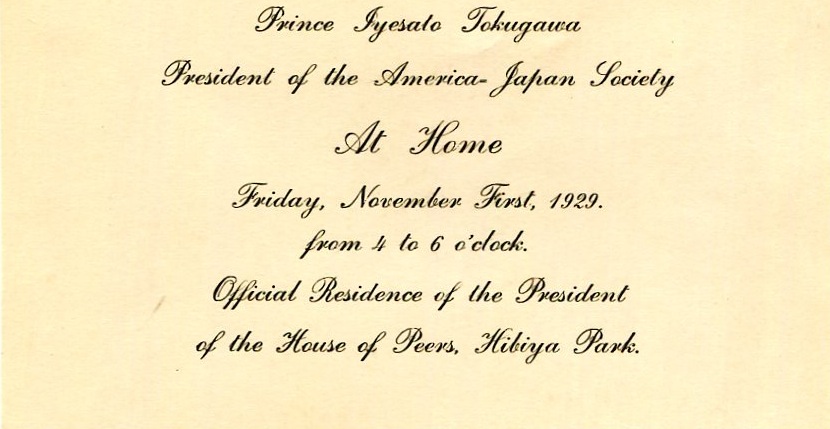 Prince Iyesato Tokugawa
President of the America-Japan Society
At Home
Friday, November First, 1929.
from 4 to 6 o'clock.
Official Residence of the President
of the House of Peers, Hibiya Park.